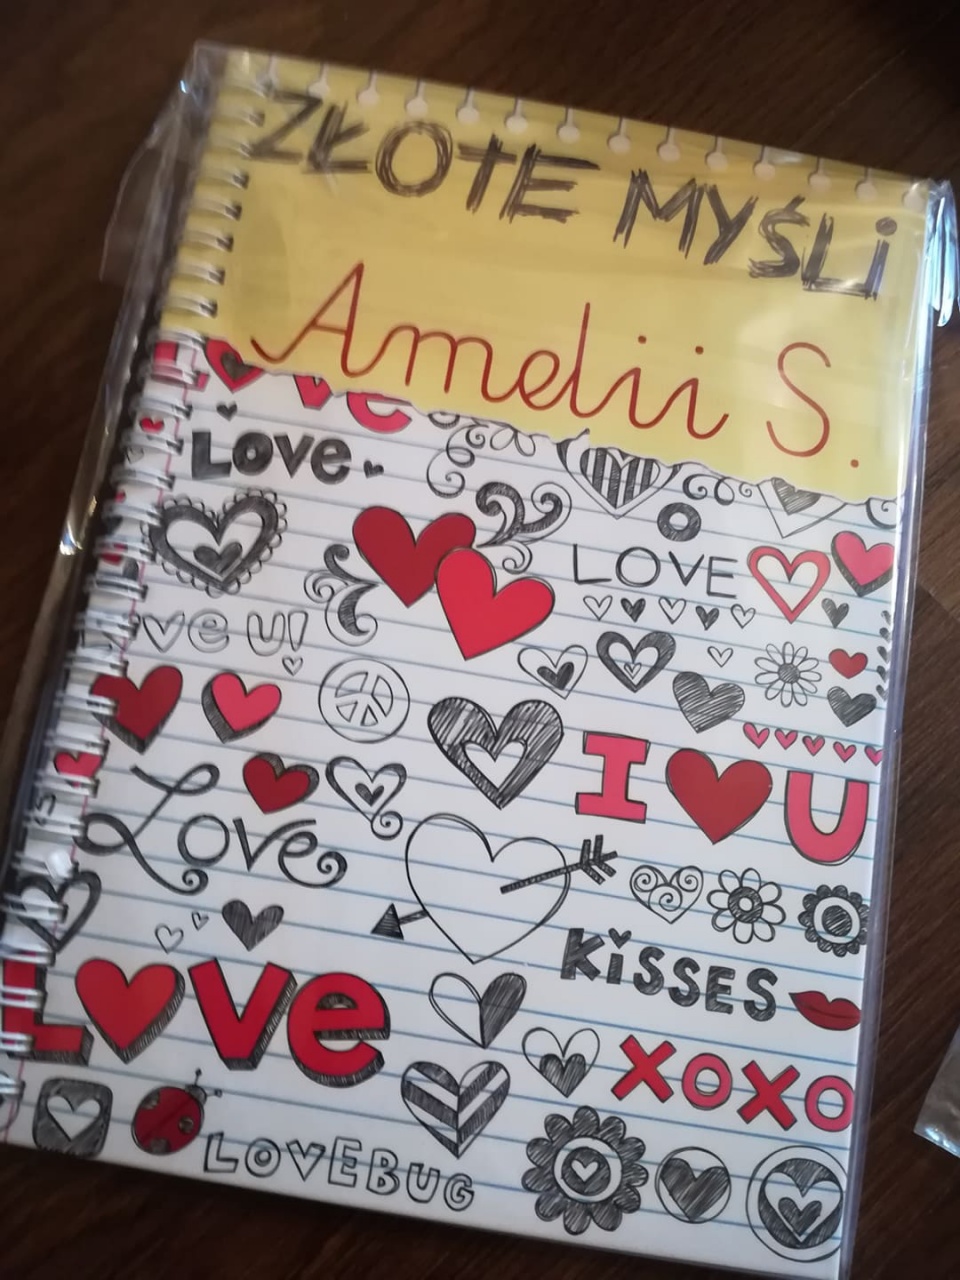 ZŁOTE MYŚLi
Amelii S.
Love
LOVE
LOVE
ove u!
I U
Love
KiSSES
Love
XOXO
LOVEBUG